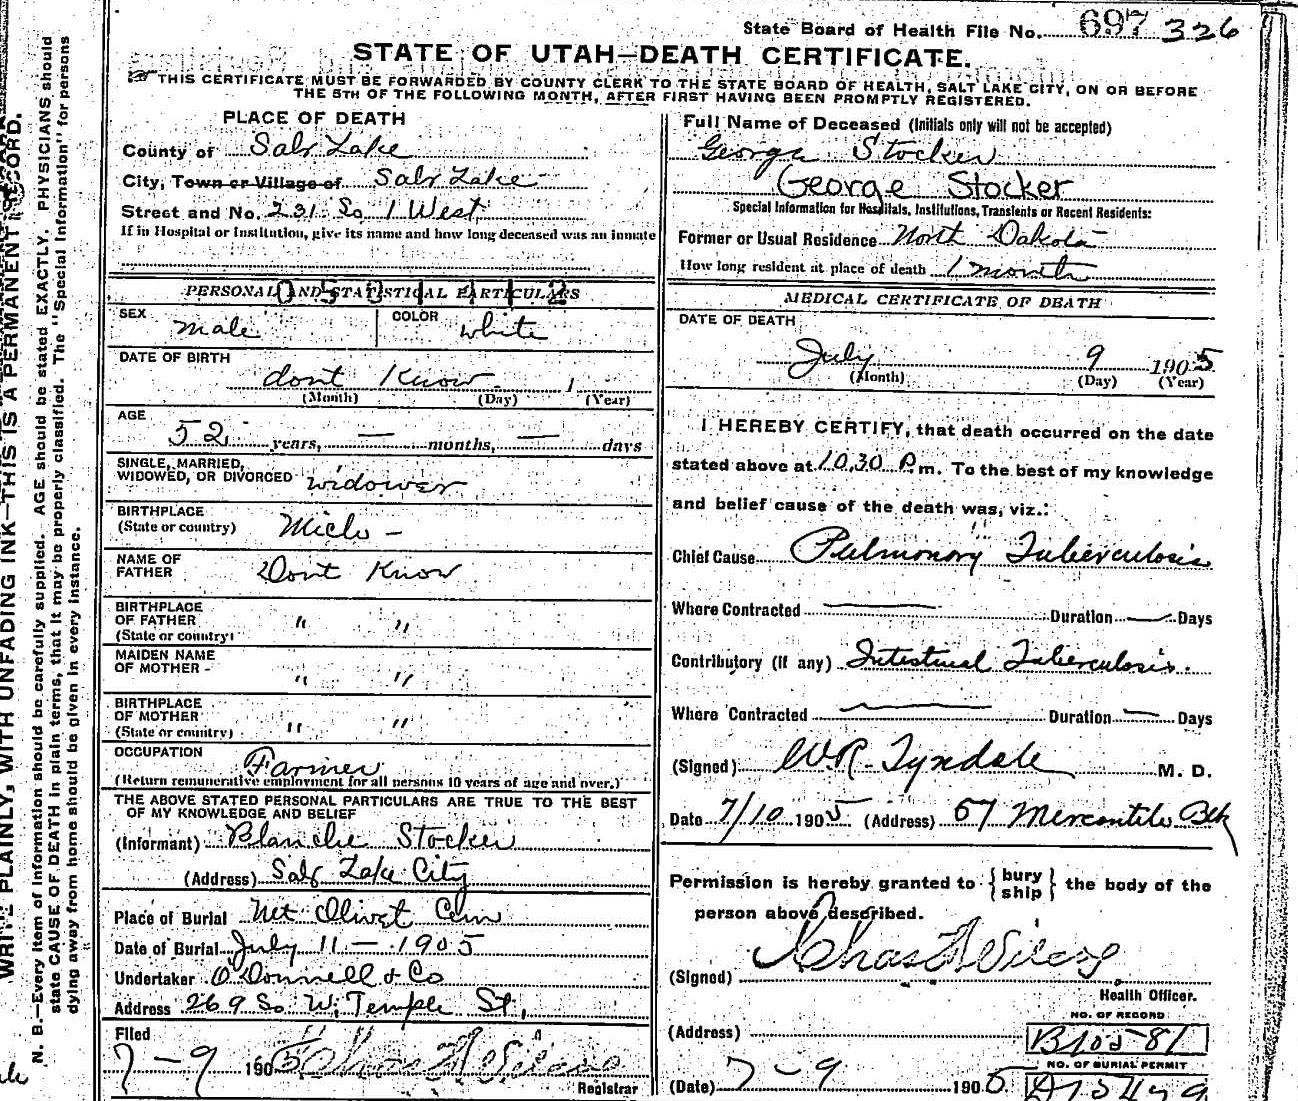 State Board of Health File No. 697 326
STATE OF UTAH—DEATH CERTIFICATE.
THIS CERTIFICATE MUST BE FORWARDED BY COUNTY CLERK TO THE STATE BOARD OF HEALTH, SALT LAKE CITY, ON OR BEFORE
THE 5TH OF THE FOLLOWING MONTH, AFTER FIRST HAVING BEEN PROMPTLY REGISTERED.
PLACE OF DEATH
County of Salt Lake
City, Town or Village of Salt Lake
Street and No. 231 So 1 West
If in Hospital or Institution, give its name and how long deceased was an inmate
PERSONAL AND STATISTICAL PARTICULARS
SEX male COLOR white
DATE OF BIRTH
dont Know
(Month) (Day) (Year)
AGE
52 years, — months, — days
SINGLE, MARRIED,
WIDOWED, OR DIVORCED widower
BIRTHPLACE
(State or country) Mich -
NAME OF
FATHER Dont Know
BIRTHPLACE
OF FATHER " "
(State or country)
MAIDEN NAME
OF MOTHER - " "
BIRTHPLACE
OF MOTHER " "
(State or country)
OCCUPATION Farmer
(Return remunerative employment for all persons 10 years of age and over.)
THE ABOVE STATED PERSONAL PARTICULARS ARE TRUE TO THE BEST
OF MY KNOWLEDGE AND BELIEF
(Informant) Blanche Stocker
(Address) Salt Lake City
Place of Burial Mt Olivet Cem
Date of Burial July 11 - 1905
Undertaker O'Donnell & Co
Address 269 So W. Temple St.
Filed
7 - 9 1905 Chas
Registrar
Full Name of Deceased (Initials only will not be accepted)
George Stocker
George Stocker
Special Information for Hospitals, Institutions, Transients or Recent Residents:
Former or Usual Residence North Dakota
How long resident at place of death 1 month
MEDICAL CERTIFICATE OF DEATH
DATE OF DEATH
July 9 1905
(Month) (Day) (Year)
I HEREBY CERTIFY, that death occurred on the date
stated above at 10.30 P.m. To the best of my knowledge
and belief cause of the death was, viz.:
Chief Cause Pulmonary Tuberculosis
Where Contracted — Duration — Days
Contributory (if any) Intestinal Tuberculosis.
Where Contracted — Duration — Days
(Signed) W.R. Tyndale M. D.
Date 7/10 1905 (Address) 57 Mercantile Blk
Permission is hereby granted to { bury
ship } the body of the
person above described.
(Signed) Chas
Health Officer.
NO. OF RECORD
(Address)
NO. OF BURIAL PERMIT
(Date) 7 - 9 1905
WRITE PLAINLY, WITH UNFADING INK—THIS IS A PERMANENT RECORD.
N. B.—Every item of information should be carefully supplied. AGE should be stated EXACTLY. PHYSICIANS should
state CAUSE OF DEATH in plain terms, that it may be properly classified. The "Special Information" for persons
dying away from home should be given in every instance.